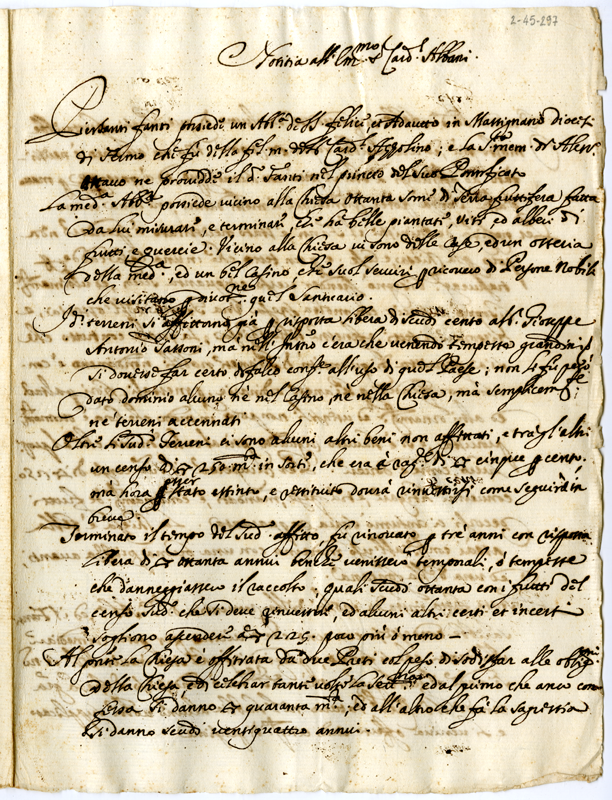 2-45-297
Notitia all' Em.mo Sr. Card. Albani.
Pierbanti fanti possiede un Ab.a de SS. felice et Adaucto in Massignano diocesi
di fermo che fù della fel. m. dello Card. Azzolino; e la S.ta mem. di Aless.
Ottavo ne providde il d. fanti nel principio del suo Pontificato
La med.a Ab.a possiede vicino alla Chiesa ottanta some di Terra fruttifera fatta
da lui misurare, e terminare, che hà belle piantate, viti, ed alberi di
frutti e quercie. Vicino alla Chiesa vi sono delle Case, ed un osteria
della med.a, ed un bel Casino che suol servire p ricovero di Persone Nobili
che visitano p divot.ne quel Santuario.
I d. terreni si affittorno già p risposta libera di scudi cento all. Giuseppe
Antonio Sassoni, mà nell' Instro c'era che venendo tempeste grandini
si dovesse far certo difalco conf.e all'uso di quel Paese; non li fu però
dato dominio alcuno nè nel Casino, nè nella Chiesa, mà semplicem.te
ne terreni accennati
Oltre li sud. Terreni ci sono alcuni altri beni non affittati, e trà gl'altri
un censo di 250 m.ta in sorte, che era à rag.e di cinque p cento,
mà hora p esser stato estinto, e restituito dovrà rinvestirsi come seguirà in
breve
Terminato il tempo del sud. affitto, fu rinovato p trè anni con risposta
libera di ottanta annui benche venissero temporali, ò tempeste
che danneggiassero il raccolto, quali scudi ottanta con i frutti del
censo sud. che si deve rinvestire, ed alcuni altri certi et incerti
sogliono ascendere à 125. poco più ò meno
Al pnte la Chiesa è offitiata da due Preti col peso di sodisfar alle oblig.ni
della Chiesa e di celebrar tante volte la sett.mana ed al primo che anco con
fessa si danno quaranta m.ta, ed all'altro che fà la sagrestia
si danno scudi ventiquattro annui.